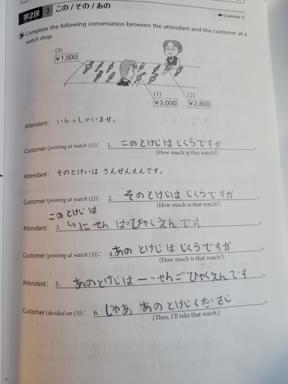 第2課 3 この/その/あの
Grammar 2
Complete the following conversation between the attendant and the customer at a
watch shop.
(3)
¥1,500
(1)
¥3,000
(2)
¥2,800
Attendant: いらっしゃいませ。
Customer (pointing at watch (1)): 1. このとけいはいくらですか
(How much is this watch?)
Attendant: そのとけいは さんぜんえんです。
Customer (pointing at watch (2)): 2. そのとけいはいくらですか
(How much is that watch?)
このとけいは
Attendant: 3. にせんはっぴゃくえんです
Customer (pointing at watch (3)): 4. あのとけいはいくらですか
(How much is that watch?)
Attendant: 5. あのとけいは せんごひゃくえんです
Customer (decided on (3)): 6. じゃあ あのとけいくださ
(Then, I'll take that watch.)